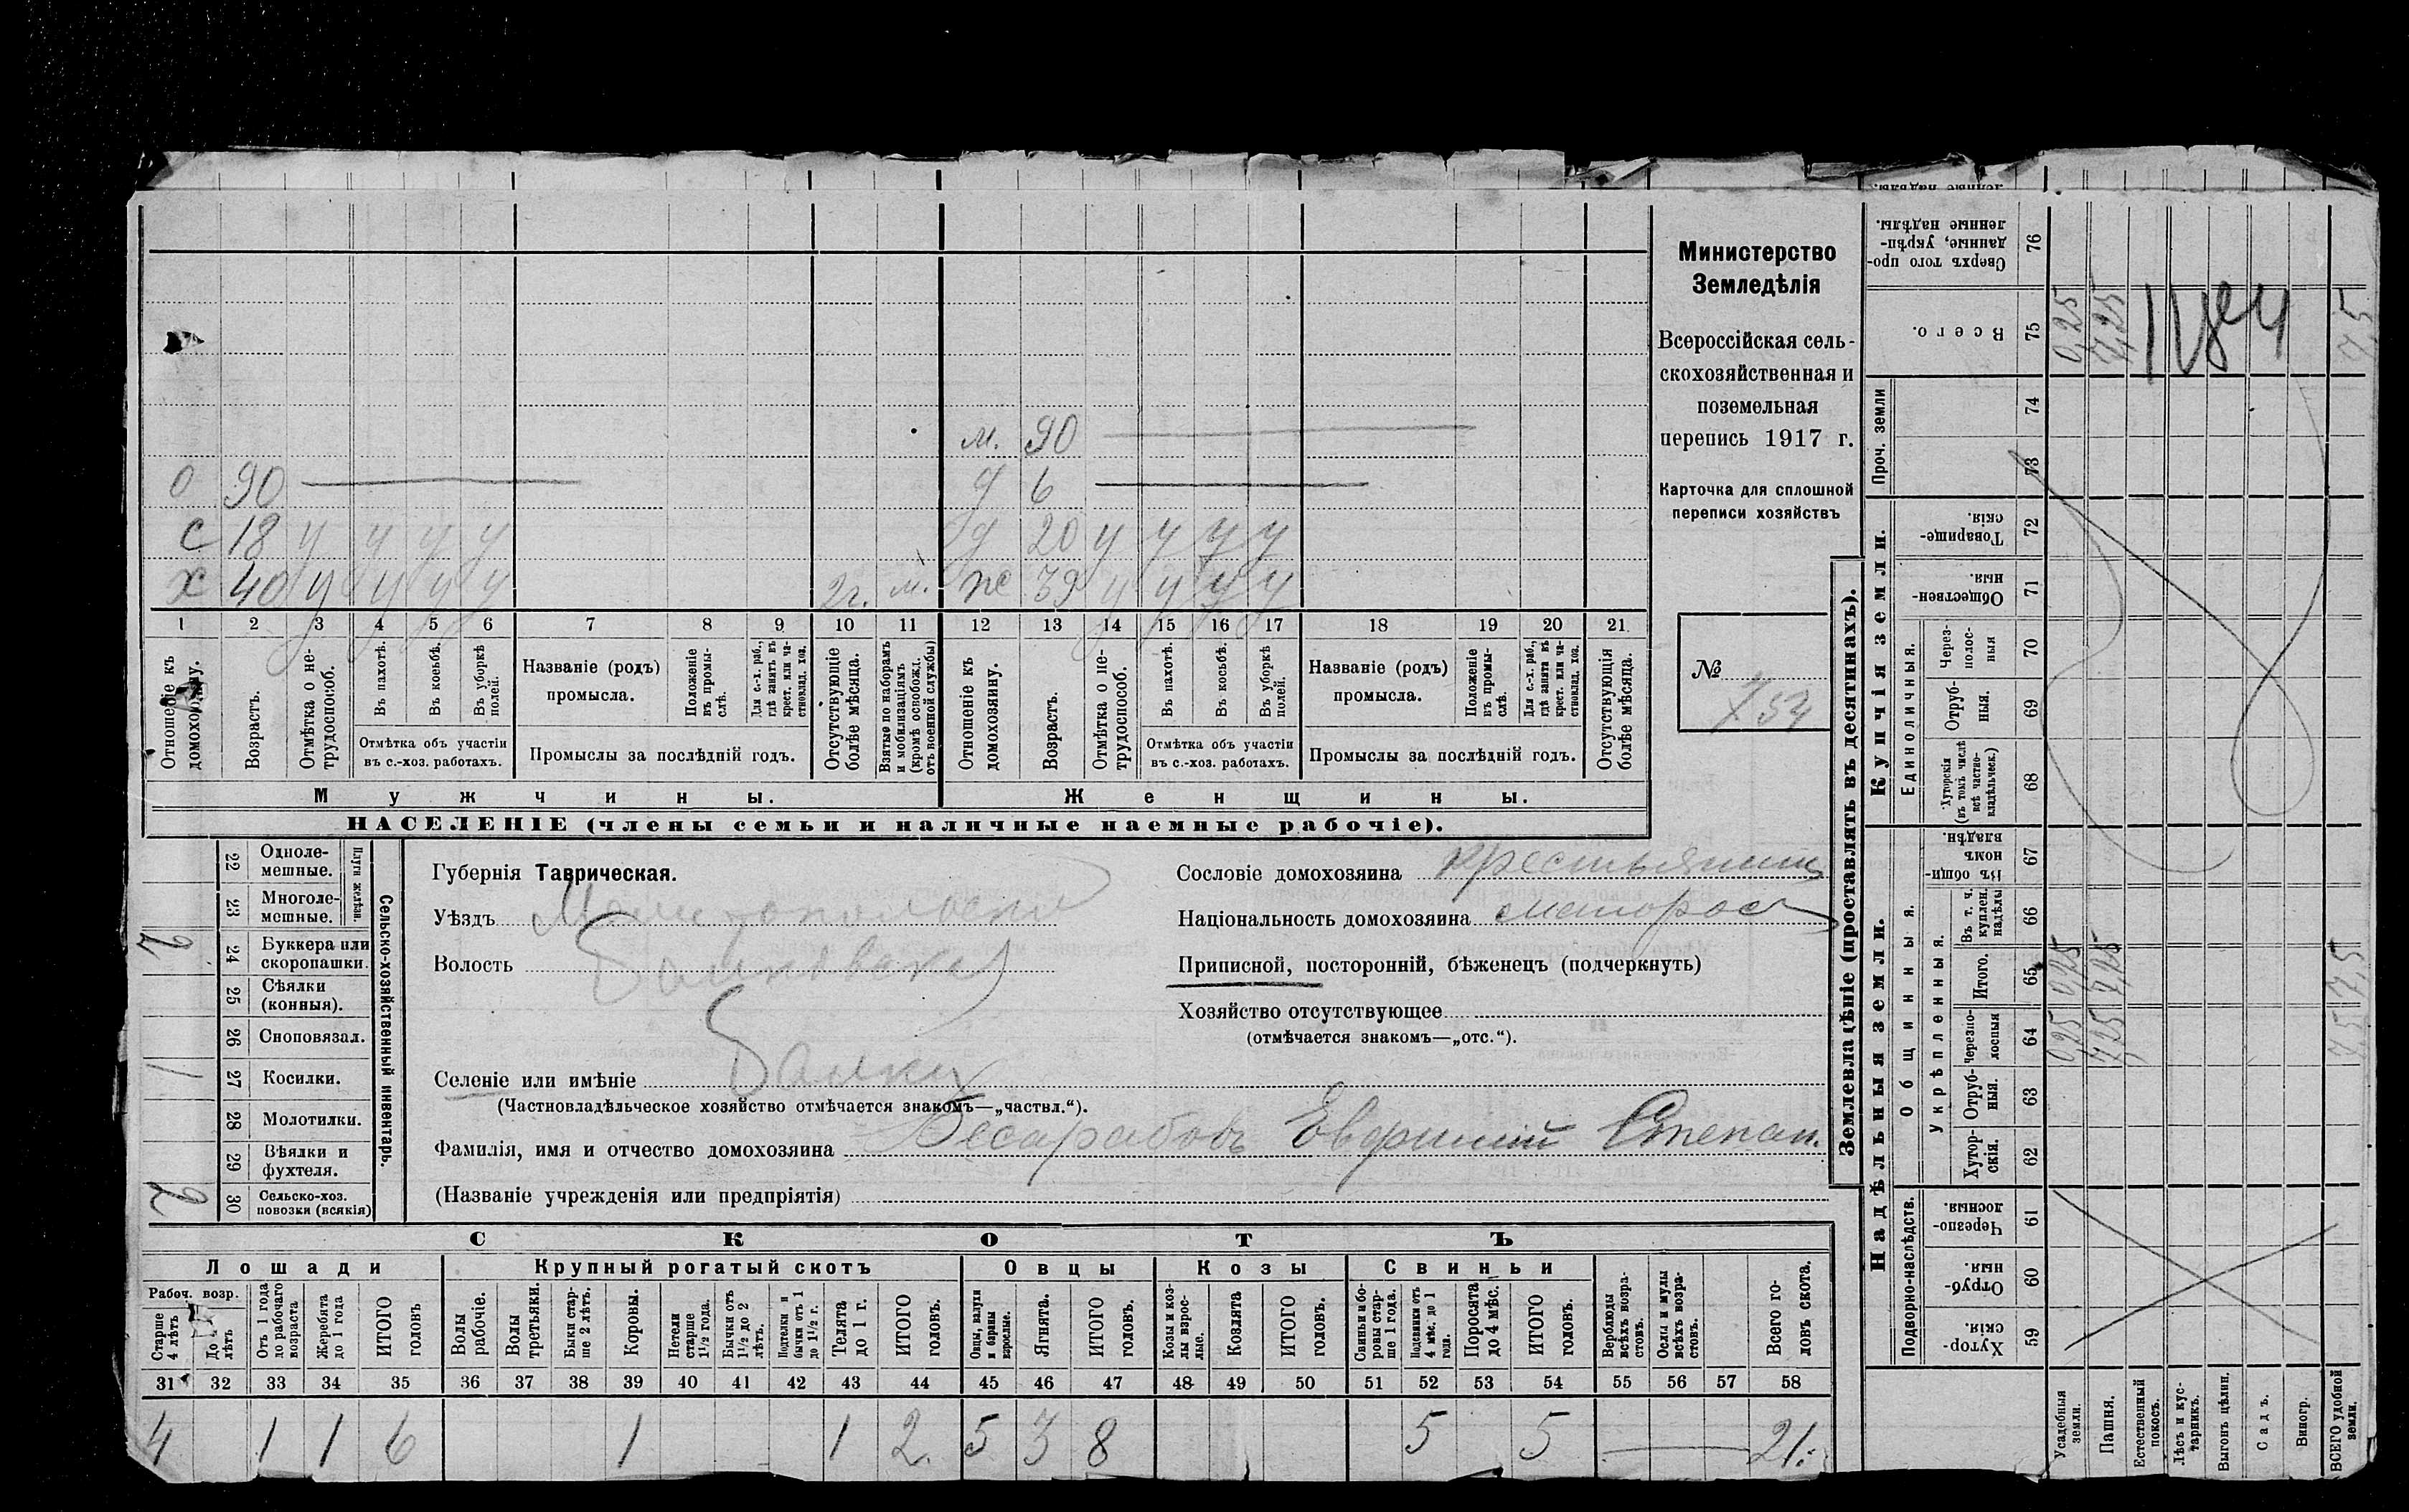 м. 90
о 90
д 6
с 18 у у у у
д 20 у у у у
х 40 у у у у 2г. м.
ж 39 у у у у
1 2 3 4 5 6 7 8 9 10 11 12 13 14 15 16 17 18 19 20 21
Отношеніе къ домохозяину.
Возрастъ.
Отмѣтка о не-трудоспособ.
Въ пахотѣ.
Въ косьбѣ.
Въ уборкѣ полей.
Отмѣтка объ участіи въ с.-хоз. работахъ.
Названіе (родъ) промысла.
Положеніе въ промы-слѣ.
Для с.-х. раб., гдѣ занятъ въ крест. или ча-стновлад. хоз.
Промыслы за послѣдній годъ.
Отсутствующіе болѣе мѣсяца.
Взятые по наборамъ и мобилизаціямъ (кромѣ освобожд. отъ военной службы)
Отношеніе къ домохозяину.
Возрастъ.
Отмѣтка о не-трудоспособ.
Въ пахотѣ.
Въ косьбѣ.
Въ уборкѣ полей.
Отмѣтка объ участіи въ с.-хоз. работахъ.
Названіе (родъ) промысла.
Положеніе въ промы-слѣ.
Для с.-х. раб., гдѣ занята въ крест. или ча-стновлад. хоз.
Промыслы за послѣдній годъ.
Отсутствующія болѣе мѣсяца.
Мужчины.
Женщины.
НАСЕЛЕНІЕ (члены семьи и наличные наемные рабочіе).
Министерство
Земледѣлія
Всероссійская сель-
скохозяйственная и
поземельная
перепись 1917 г.
Карточка для сплошной
переписи хозяйствъ
№
754
Сельско-хозяйственный инвентарь.
Плуги желѣзн.
22 Одноле-мешные.
23 Многоле-мешные.
24 Буккера или скоропашки. 2
25 Сѣялки (конныя).
26 Сноповязал.
27 Косилки. 1
28 Молотилки.
29 Вѣялки и фухтеля.
30 Сельско-хоз. повозки (всякія) 2
Губернія Таврическая.
Уѣздъ Мелитопольскій
Волость Балковская
Селеніе или имѣніе Балки
(Частновладѣльческое хозяйство отмѣчается знакомъ—„частвл.“).
Фамилія, имя и отчество домохозяина Бесарабовъ Евфимій Степан.
(Названіе учрежденія или предпріятія)
Сословіе домохозяина крестьянинъ
Національность домохозяина малорос
Приписной, посторонній, бѣженецъ (подчеркнуть)
Хозяйство отсутствующее
(отмѣчается знакомъ—„отс.“).
СКОТЪ
Лошади
Рабоч. возр.
Старше 4 лѣтъ
До 4 лѣтъ
Отъ 1 года до рабочаго возраста
Жеребята до 1 года
ИТОГО головъ
Крупный рогатый скотъ
Волы рабочіе.
Волы третьяки.
Быки стар-ше 2 лѣтъ.
Коровы.
Нетели старше 1½ года.
Бычки отъ 1½ до 2 лѣтъ.
Подтелки и бычки отъ 1 до 1½ г.
Телята до 1 г.
ИТОГО головъ.
Овцы
Овцы, валухи и бараны взрослые.
Ягнята.
ИТОГО головъ.
Козы
Козы и коз-лы взрос-лые.
Козлята
ИТОГО головъ.
Свиньи
Свиньи и бо-ровы стар-ше 1 года.
Подсвинки отъ 4 мѣс. до 1 года.
Поросята до 4 мѣс.
ИТОГО головъ.
Верблюды всѣхъ возра-стовъ.
Ослы и мулы всѣхъ возра-стовъ.
Всего го-ловъ скота.
31 32 33 34 35 36 37 38 39 40 41 42 43 44 45 46 47 48 49 50 51 52 53 54 55 56 57 58
4 1 1 6 1 1 2. 5 3 8 5 5 21.
Землевладѣніе (проставлять въ десятинахъ).
Надѣльныя земли.
Купчія земли.
Проч. земли
Подворно-наслѣдств.
Хутор-скія. 59
Отруб-ныя. 60
Черезпо-лосныя. 61
Общинныя.
Укрѣпленныя.
Хутор-скія. 62
Отруб-ныя. 63
Черезпо-лосныя 64
Итого. 65
Въ т. ч. куплен. надѣлы 66
Въ общи-номъ владѣн. 67
Единоличныя.
Хуторскія (въ томъ числѣ всѣ частно-владѣльческ.) 68
Отруб-ныя. 69
Через-полос-ныя 70
Обществен-ныя. 71
Товарище-скія. 72
73
74
Всего. 75
Сверхъ того про-данные, укрѣп-ленные надѣлы. 76
Усадебныя земли. 0,25 0,25 0,25
Пашня. 7,25 7,25 7,25
Естественный покосъ.
Лѣсъ и кус-тарникъ.
Выгонъ цѣлин.
Садъ.
Виногр.
ВСЕГО удобной земли. 7,5 7,5 7,5